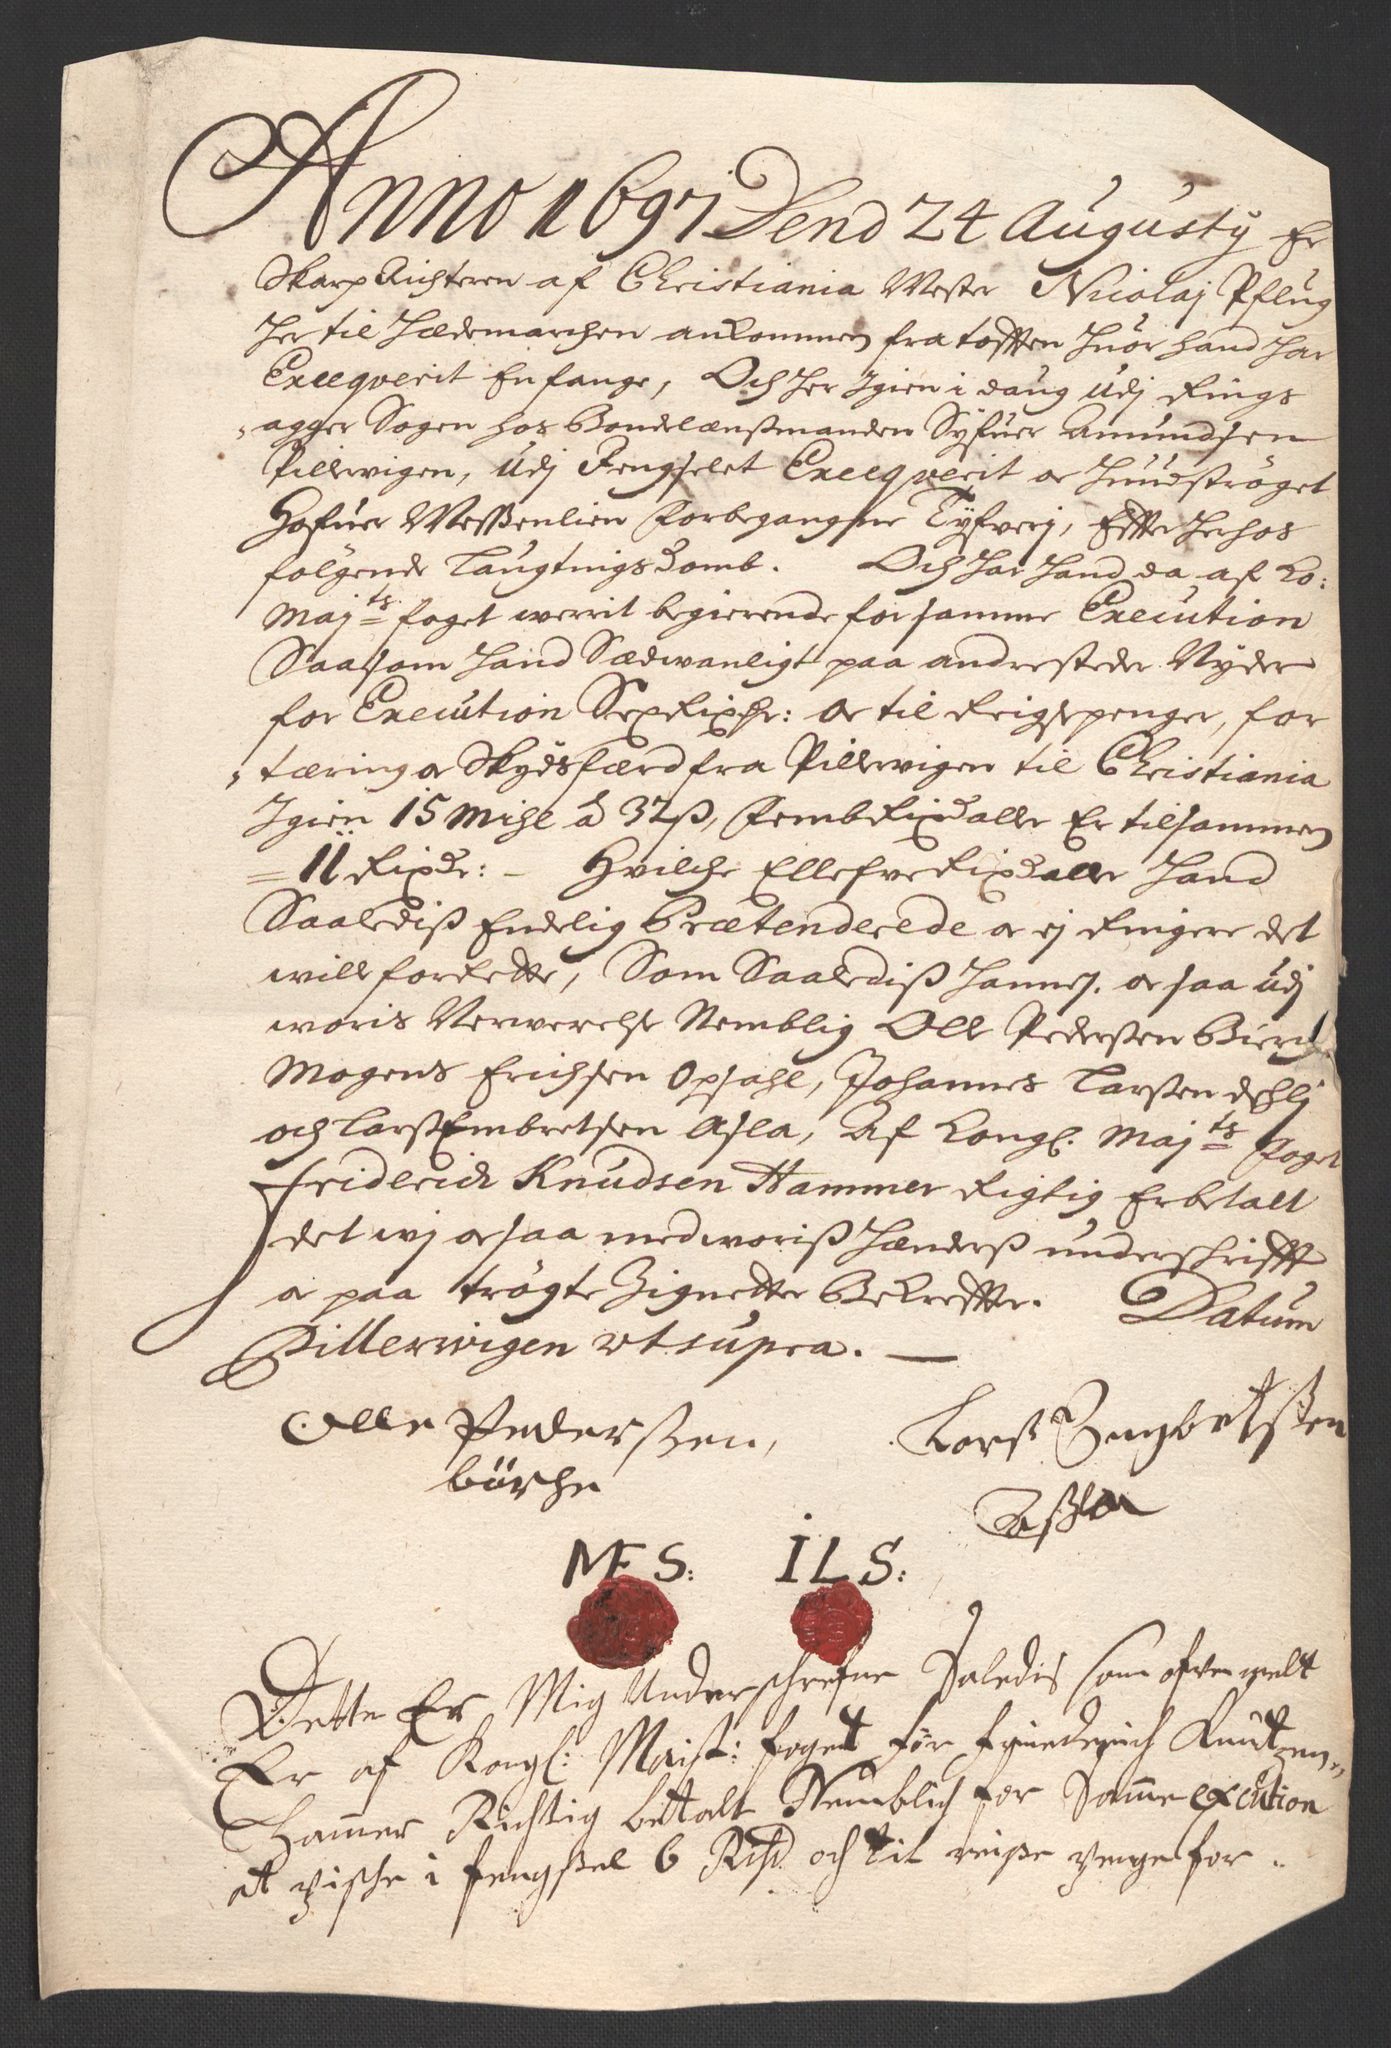 Anno 1697 Dend 24 Augusty Er
Skarp Richteren af Christiania Mester Nicolaj Pflug
her til Hedemarchen ankommen fra tofften huor hand har
Execqverit En fange, Och her Igien i daug udj Rings
agger Sogen hos Bondelænßmanden Syfuer Amundsen
Pillerwigen, udj Fengselet Execqverit oc huudströget
Hafuer Meßenlien forbegangne Tyfverj, Effter herhos
følgende Laugtings Domb. Och har hand da af Ko:
Majts foget werrit begierende for samme Execution
Saasom hand Sædwanligt paa andre steder Nyder
for Execution Sex Rixdr: oc til Reigsepenger, for
tæring oc Skydsfærd fra Pillerwigen til Christiania
Igien 15 Mihl à 32 ß, femb Rixdaller Er tilsammen
= 11 Rixdr: - Hvilche Ellefve Rixdaller hand
Saalediß Endelig Prætenderede oc ej Ringere det
wille forrette, Som Saalediß hannem oc saa udj
woris Nerwerelse Nemblig Olle Pederßen Biercke
Mogens Erichsen Opsahl, Johannes Larßen Dehlj
och Larß Embretsen Asla, Af Kongl. Majts Foget
Friderich Knudsen Hammer Rigtig Er betalt
det wj oc saa med woriß hænderß underschrifft
oc paa trögte Zignetter Bekreffter. Datum
Pillerwigen ut supra.
Olle Pederßen, Larß Engbretßen
börche Aßla
MES: ILS:
Dette Er Mig Underschrefne Saledis som ofven melt
Er af Kongl: Maist: foget för Friederich Knutzen
Hammer Richtig bettalt Nemblich for Samme excution
at pische i fengßel 6 Rixd. och til reiße penge for